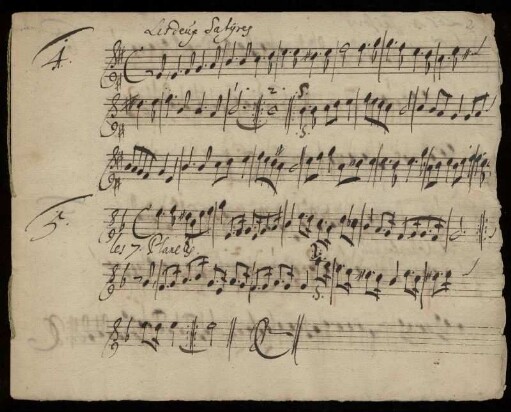 4.
Les deux Satyres
2.
5.
les 7. Planetes